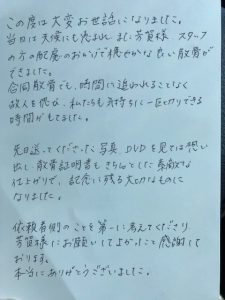 この度は大変お世話になりました。
当日は天候にも恵まれ、また芳賀様、スタッフ
の方の配慮のおかげで穏やかな良い散骨が
できました。
合同散骨でも、時間に追われることなく
故人を偲び、私たちも気持ちに一区切りできる
時間がもてました。
先日送ってくださった写真、DVDを見ては想い
出し、散骨証明書もきちんとした素敵な
仕上がりで、記念に残る大切なものに
なりました。
依頼者側のことを第一に考えてくださり
芳賀様にお願いしてよかったと感謝して
おります。
本当にありがとうございました。